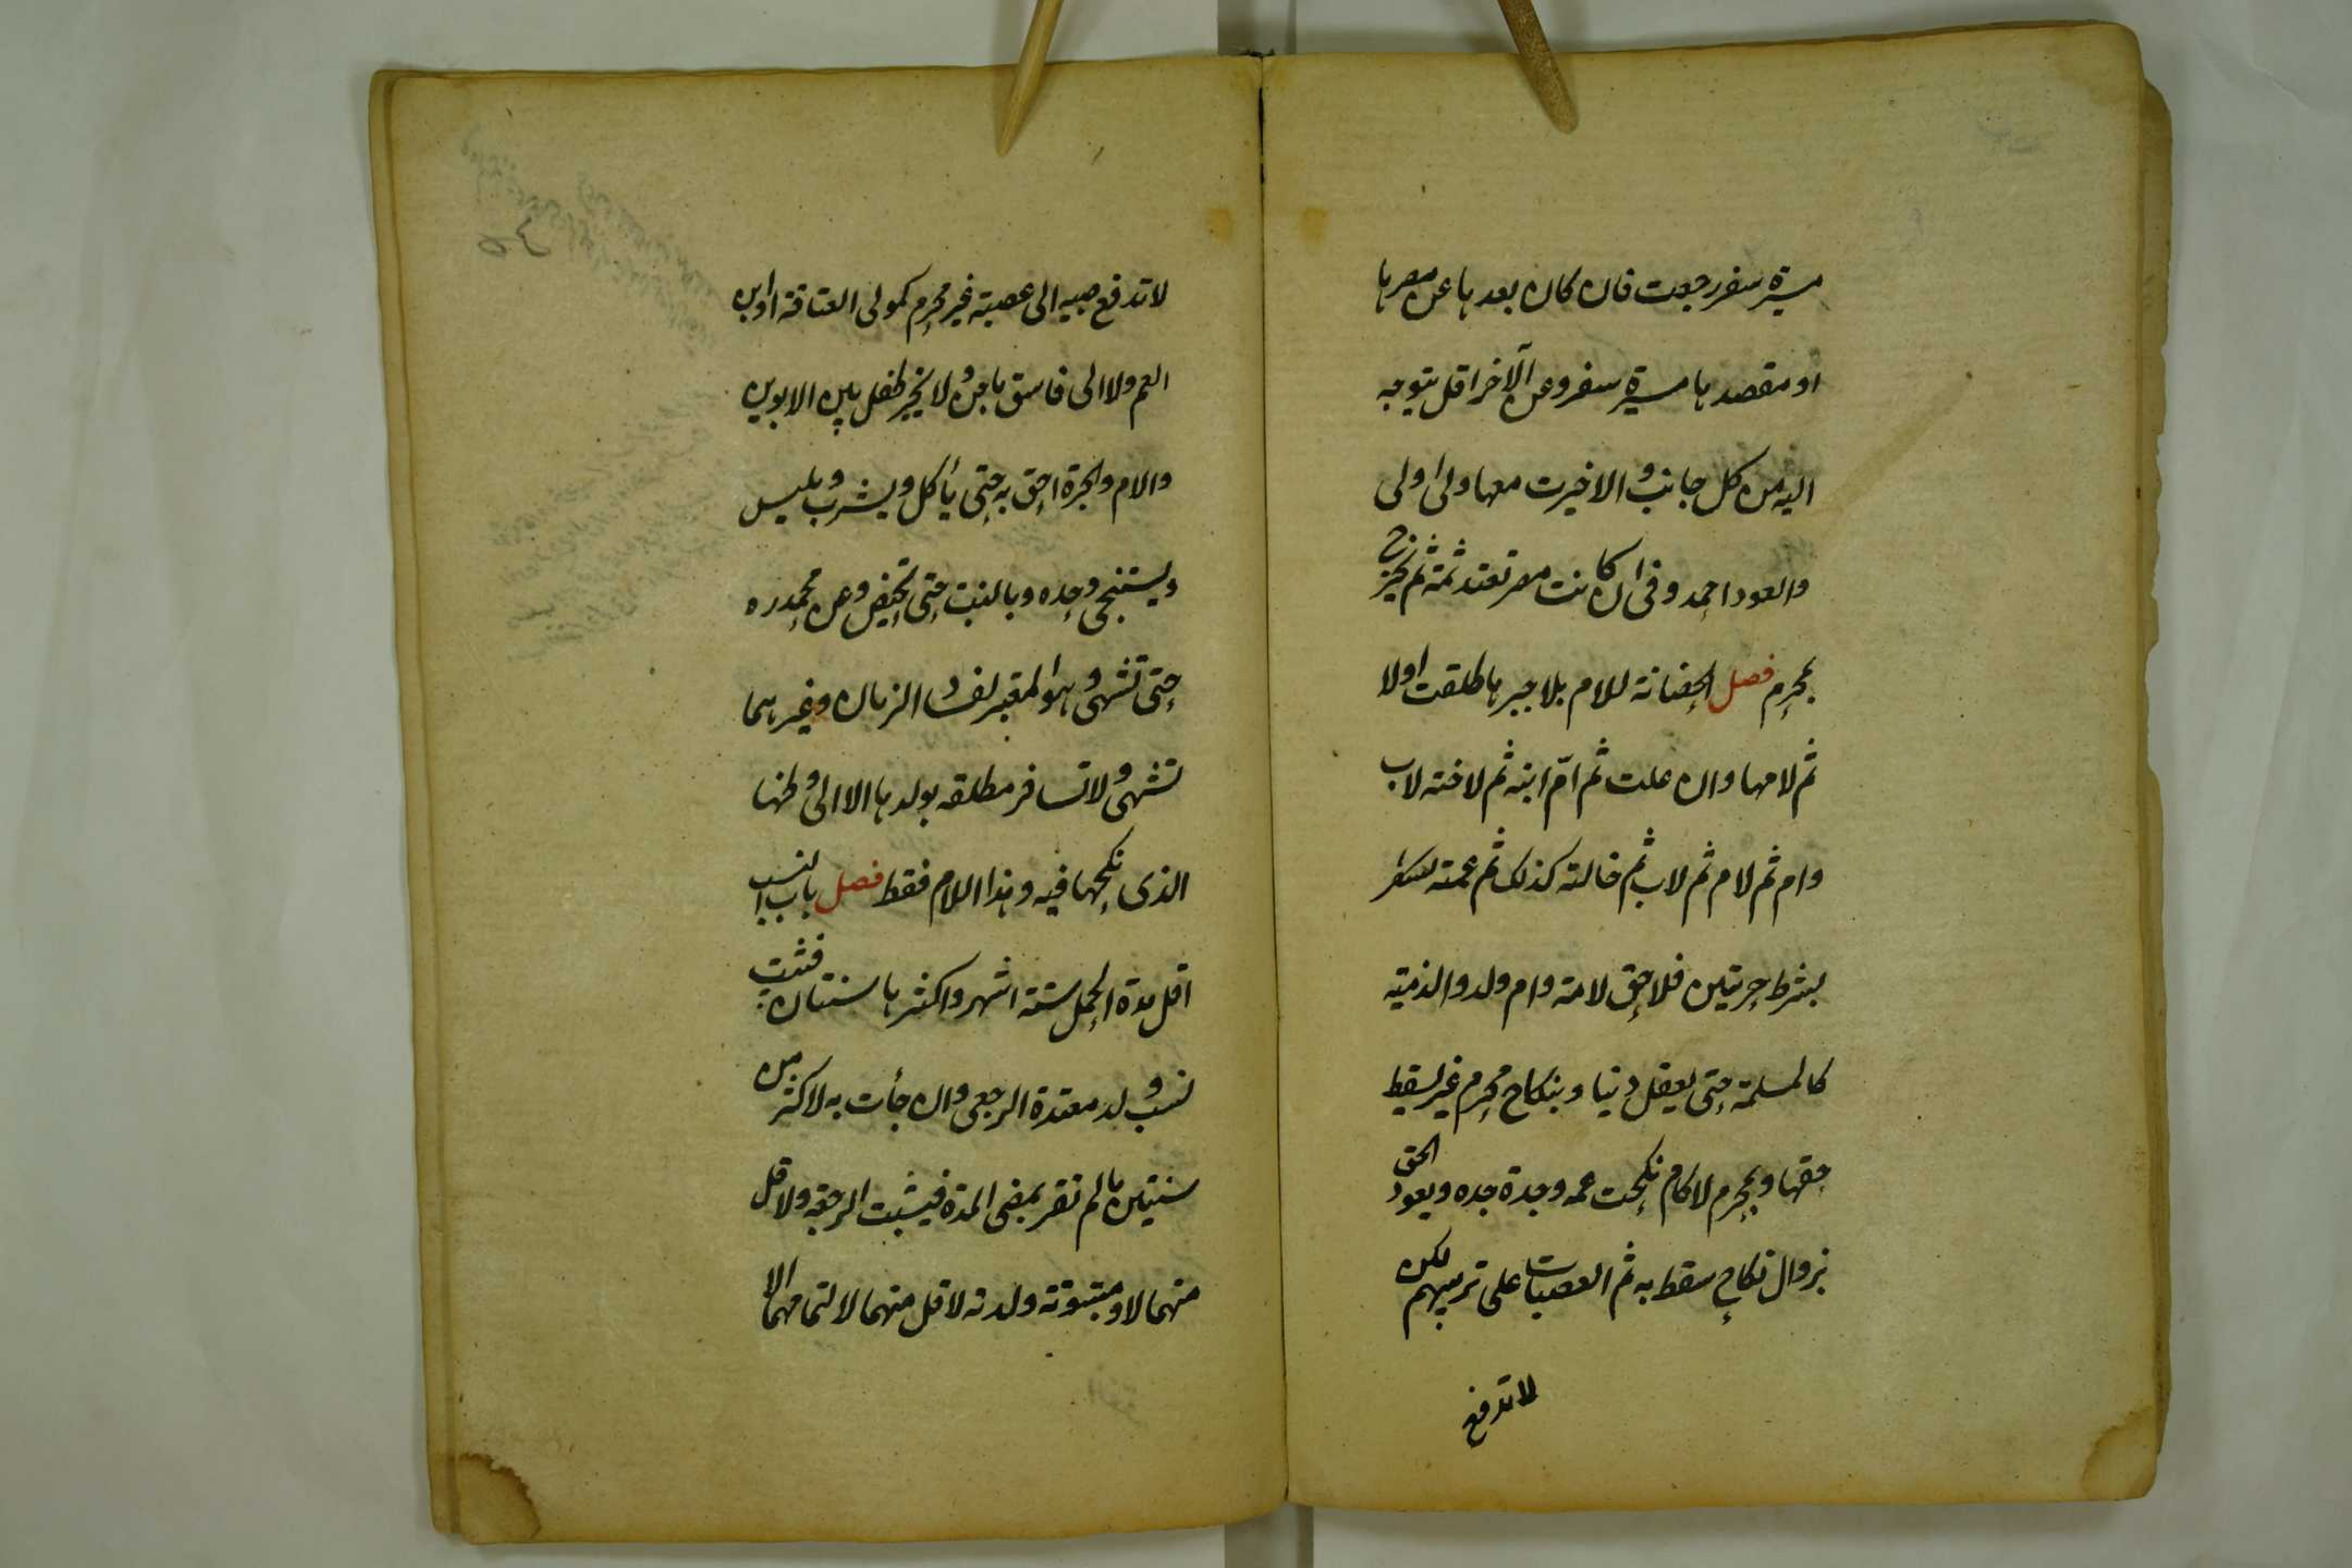 مسيرة سفر رجعت فان كان بعدها عن مصرها
او مقصدها مسيرة سفر وعن الآخر اقل يتوجه
اليه من كل جانب والاخيرت معها ولى اولى
والعود احمد وفى ان كانت مصر تعتد ثمة ثم تخرج
بمحرم فصل الحضانة للام بلا جبرها طلقت اولا
ثم لامها وان علت ثم امّ ابنه ثم لاخته لاب
وام ثم لام ثم لاب ثم خالته كذلك ثم عمته
بشرط حريتين فلا حق لامة وام ولد والذمية
كالمسلمة حتى يعقل دينا وبنكاح محرم غير يسقط
حقها وبمحرم لا كام نكحت عمه وجدة جده ويعود الحق
بزوال نكاح سقط به ثم العصبات على ترتيبهم لكن
لا تدفع
لا تدفع صبيه الى عصبته غير محرم كمولى العتاقة او ابن
العم ولا الى فاسق ماجن ولا يخير طفل بين الابوين
والام والجدة احق به حتى ياكل ويشرب ويلبس
ويستنجى وحده وبالبنت حتى تحيض وعن محمد ره
حتى تشتهى وهو المعتبر لفساد الزمان وغيرهما
تشتهى ولا تسافر مطلقه بولدها الا الى وطنها
الذى نكحها فيه وهذا اللام فقط فصل باب النسب
اقل مدة الحمل ستة اشهر واكثرها سنتان فيثبت
نسب ولد معتدة الرجعى وان جأت به لاكثر من
سنتين ما لم تقر بمضى المدة فيثبت الرجعة ولاقل
منهما لا ومبتوتة ولدته لاقل منهما لا لتمامهما الا